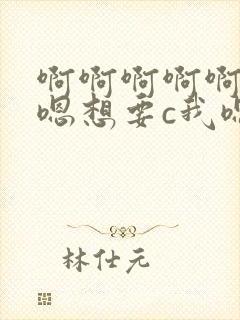 啊啊啊啊啊
嗯想要c我
林仕元